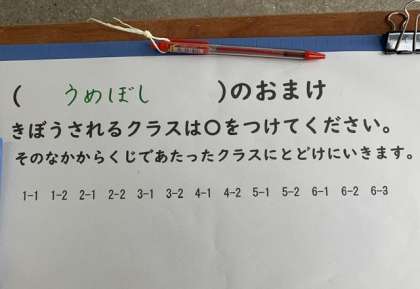 ( うめぼし )のおまけ
きぼうされるクラスは〇をつけてください。
そのなかからくじであたったクラスにとどけにいきます。
1-1 1-2 2-1 2-2 3-1 3-2 4-1 4-2 5-1 5-2 6-1 6-2 6-3